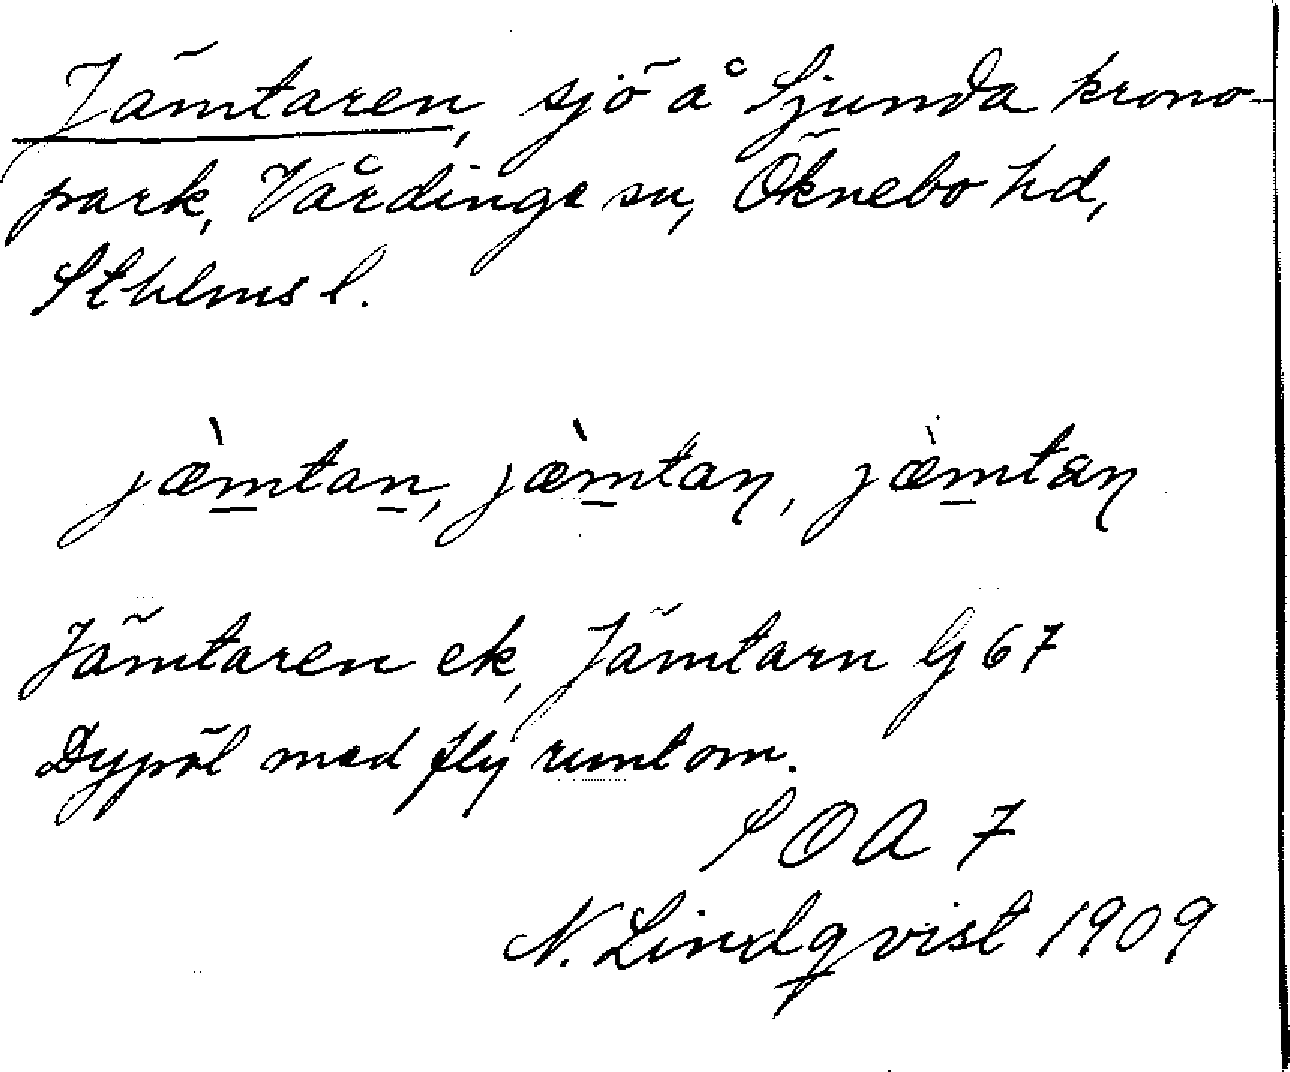 Jämtaren, sjö å Sjunda krono-
park, Vårdinge sn, Öknebo hd,
Sthlms l.
jæ̀mtan, jæ̀mtaɳ, jæ̀mtaɳ
Jämtaren ek, Jämtarn G 67
Dypöl med fly runtom.
S O A 7
N. Lindqvist 1909